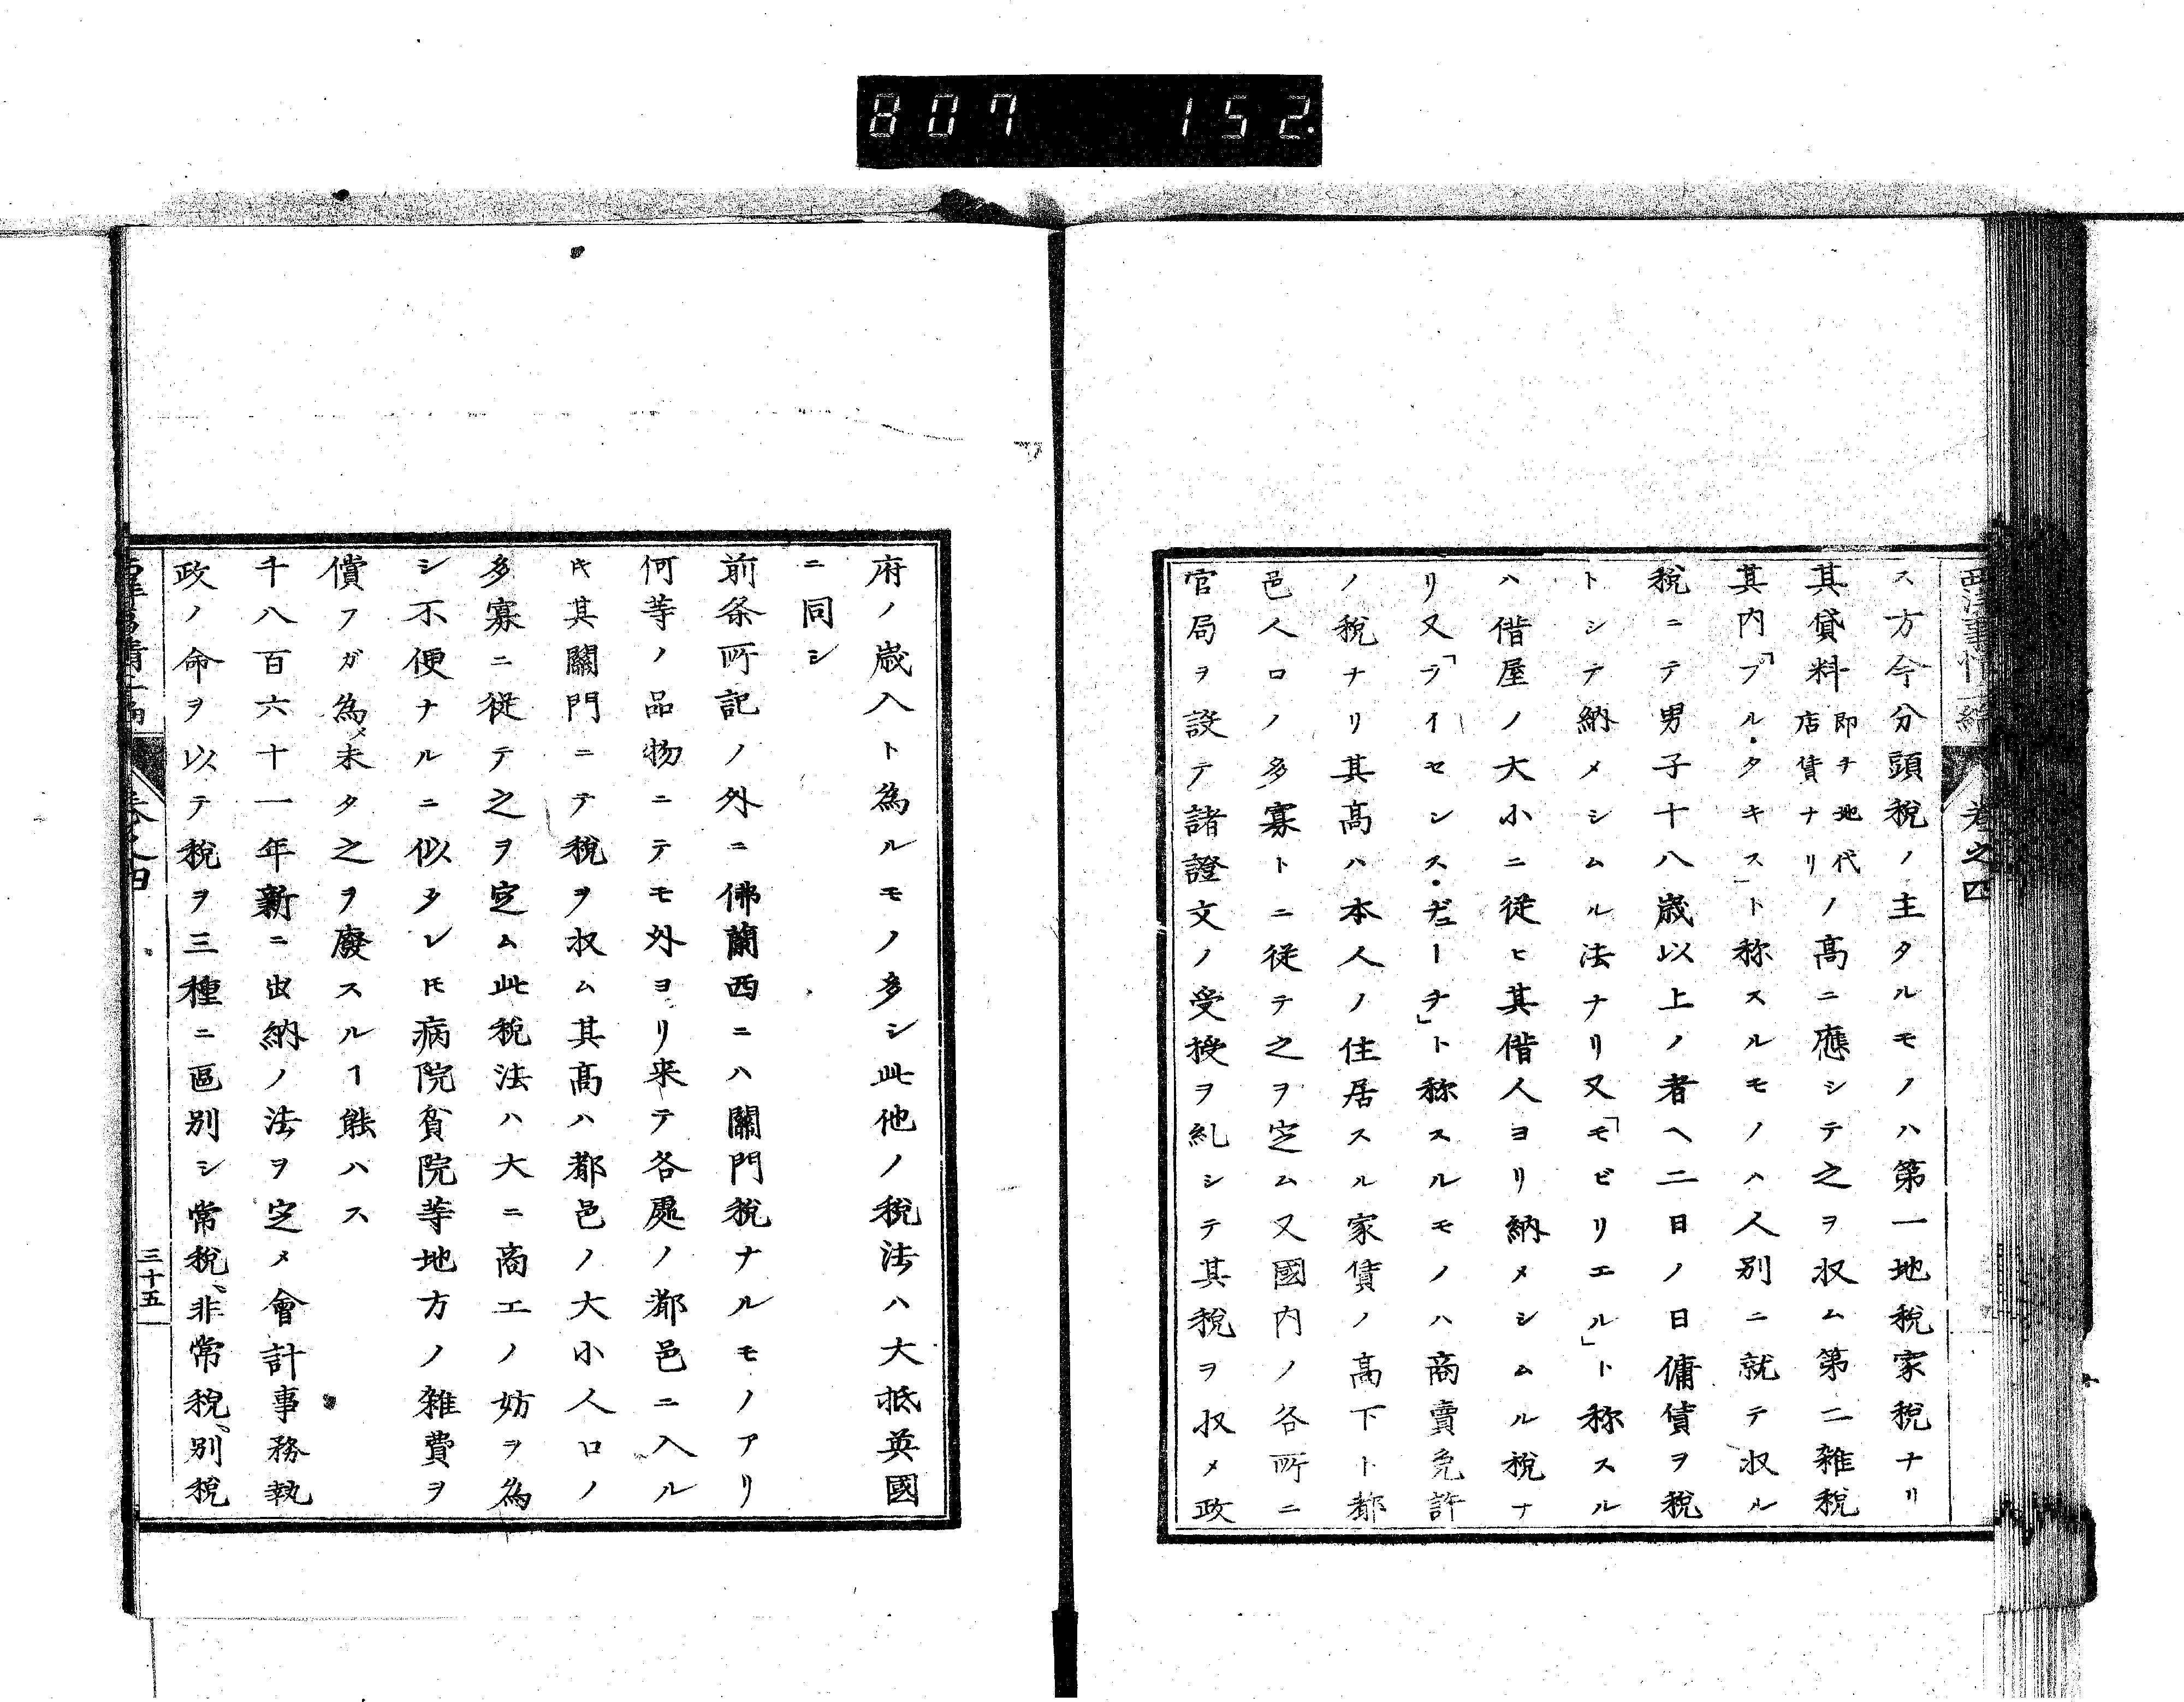 807 152
西洋事情二編 卷之四
ス方今分頭稅ノ主タルモノハ第一地稅家稅ナリ
其貸料即チ地代店賃ナリノ高ニ應シテ之ヲ収ム第二雑稅
其内「プル・タキス」ト称スルモノハ人別ニ就テ収ル
稅ニテ男子十八歳以上ノ者ヘ二日ノ日傭賃ヲ稅
トシテ納メシムル法ナリ又「モビリエル」ト称スル
ハ借屋ノ大小ニ従ヒ其借人ヨリ納メシムル稅ナ
リ又「ライセンス・ヂューチ」ト称スルモノハ商賣免許
ノ稅ナリ其高ハ本人ノ住居スル家賃ノ高下ト都
邑人口ノ多寡トニ従テ之ヲ定ム又國内ノ各所ニ
官局ヲ設テ諸證文ノ受授ヲ糺シテ其稅ヲ収メ政
府ノ歳入ト為ルモノ多シ此他ノ稅法ハ大抵英國
ニ同シ
前条所記ノ外ニ佛蘭西ニハ關門稅ナルモノアリ
何等ノ品物ニテモ外ヨリ来テ各處ノ都邑ニ入ル
𪜈其關門ニテ稅ヲ収ム其高ハ都邑ノ大小人口ノ
多寡ニ従テ之ヲ定ム此稅法ハ大ニ商工ノ妨ヲ為
シ不便ナルニ似タレ𪜈病院貧院等地方ノ雑費ヲ
償フガ為メ未タ之ヲ廢スルヿ能ハス
千八百六十一年新ニ出納ノ法ヲ定メ會計事務執
政ノ命ヲ以テ稅ヲ三種ニ區別シ常稅、非常稅、別稅
西洋事情二編 卷之四 三十五